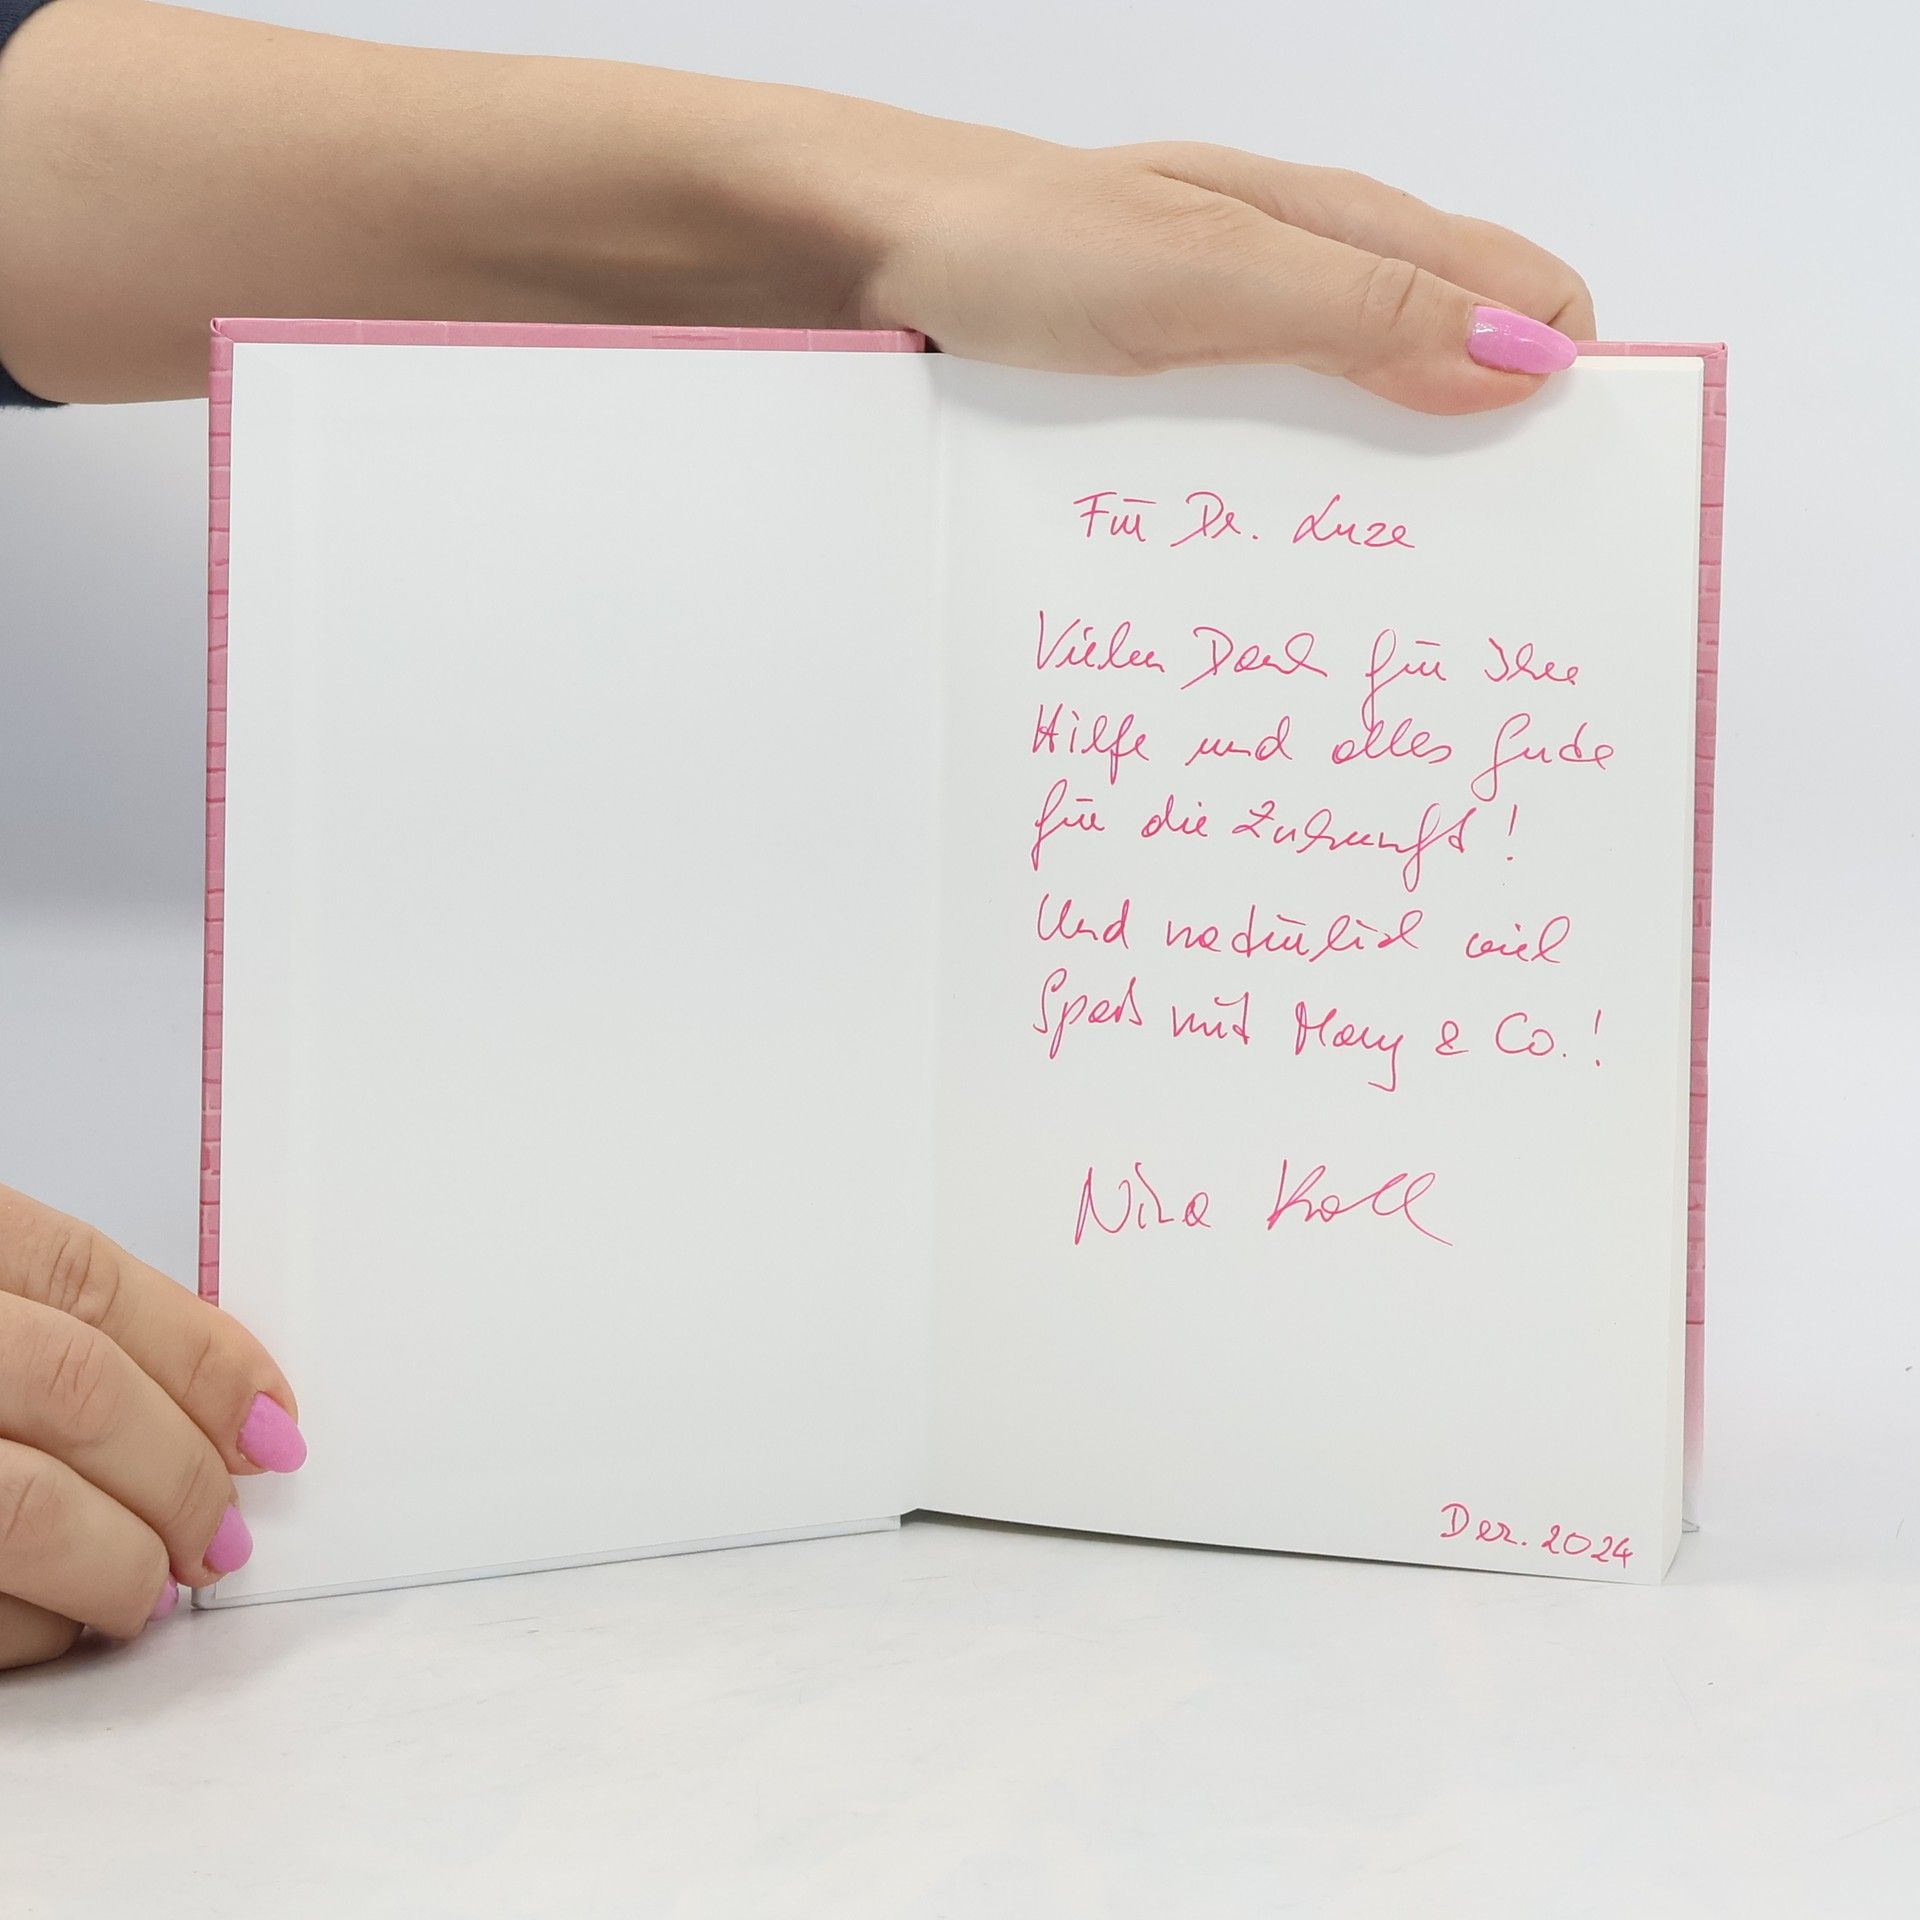 Für Dr. Luze
Vielen Dank für Ihre
Hilfe und alles Gute
für die Zukunft!
Und natürlich viel
Spaß mit Mary & Co.!
Nina Koll
Dez. 2024